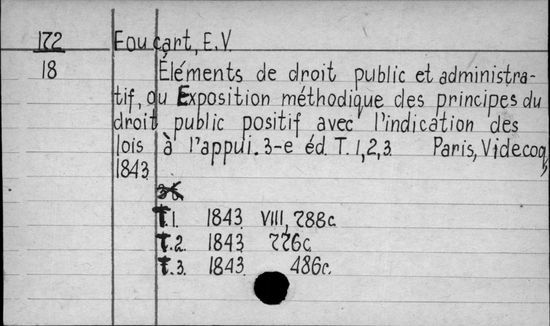 172 Foucart, E.V.
18 Éléments de droit public et administra-
tif, ou Exposition méthodique des principes du
droit public positif avec l'indication des
lois à l'appui. 3-e éd. T. 1,2,3. Paris, Videcoq,
1843.
T.1. 1843 VIII, 788c.
T.2. 1843 776c.
T.3. 1843 486c.